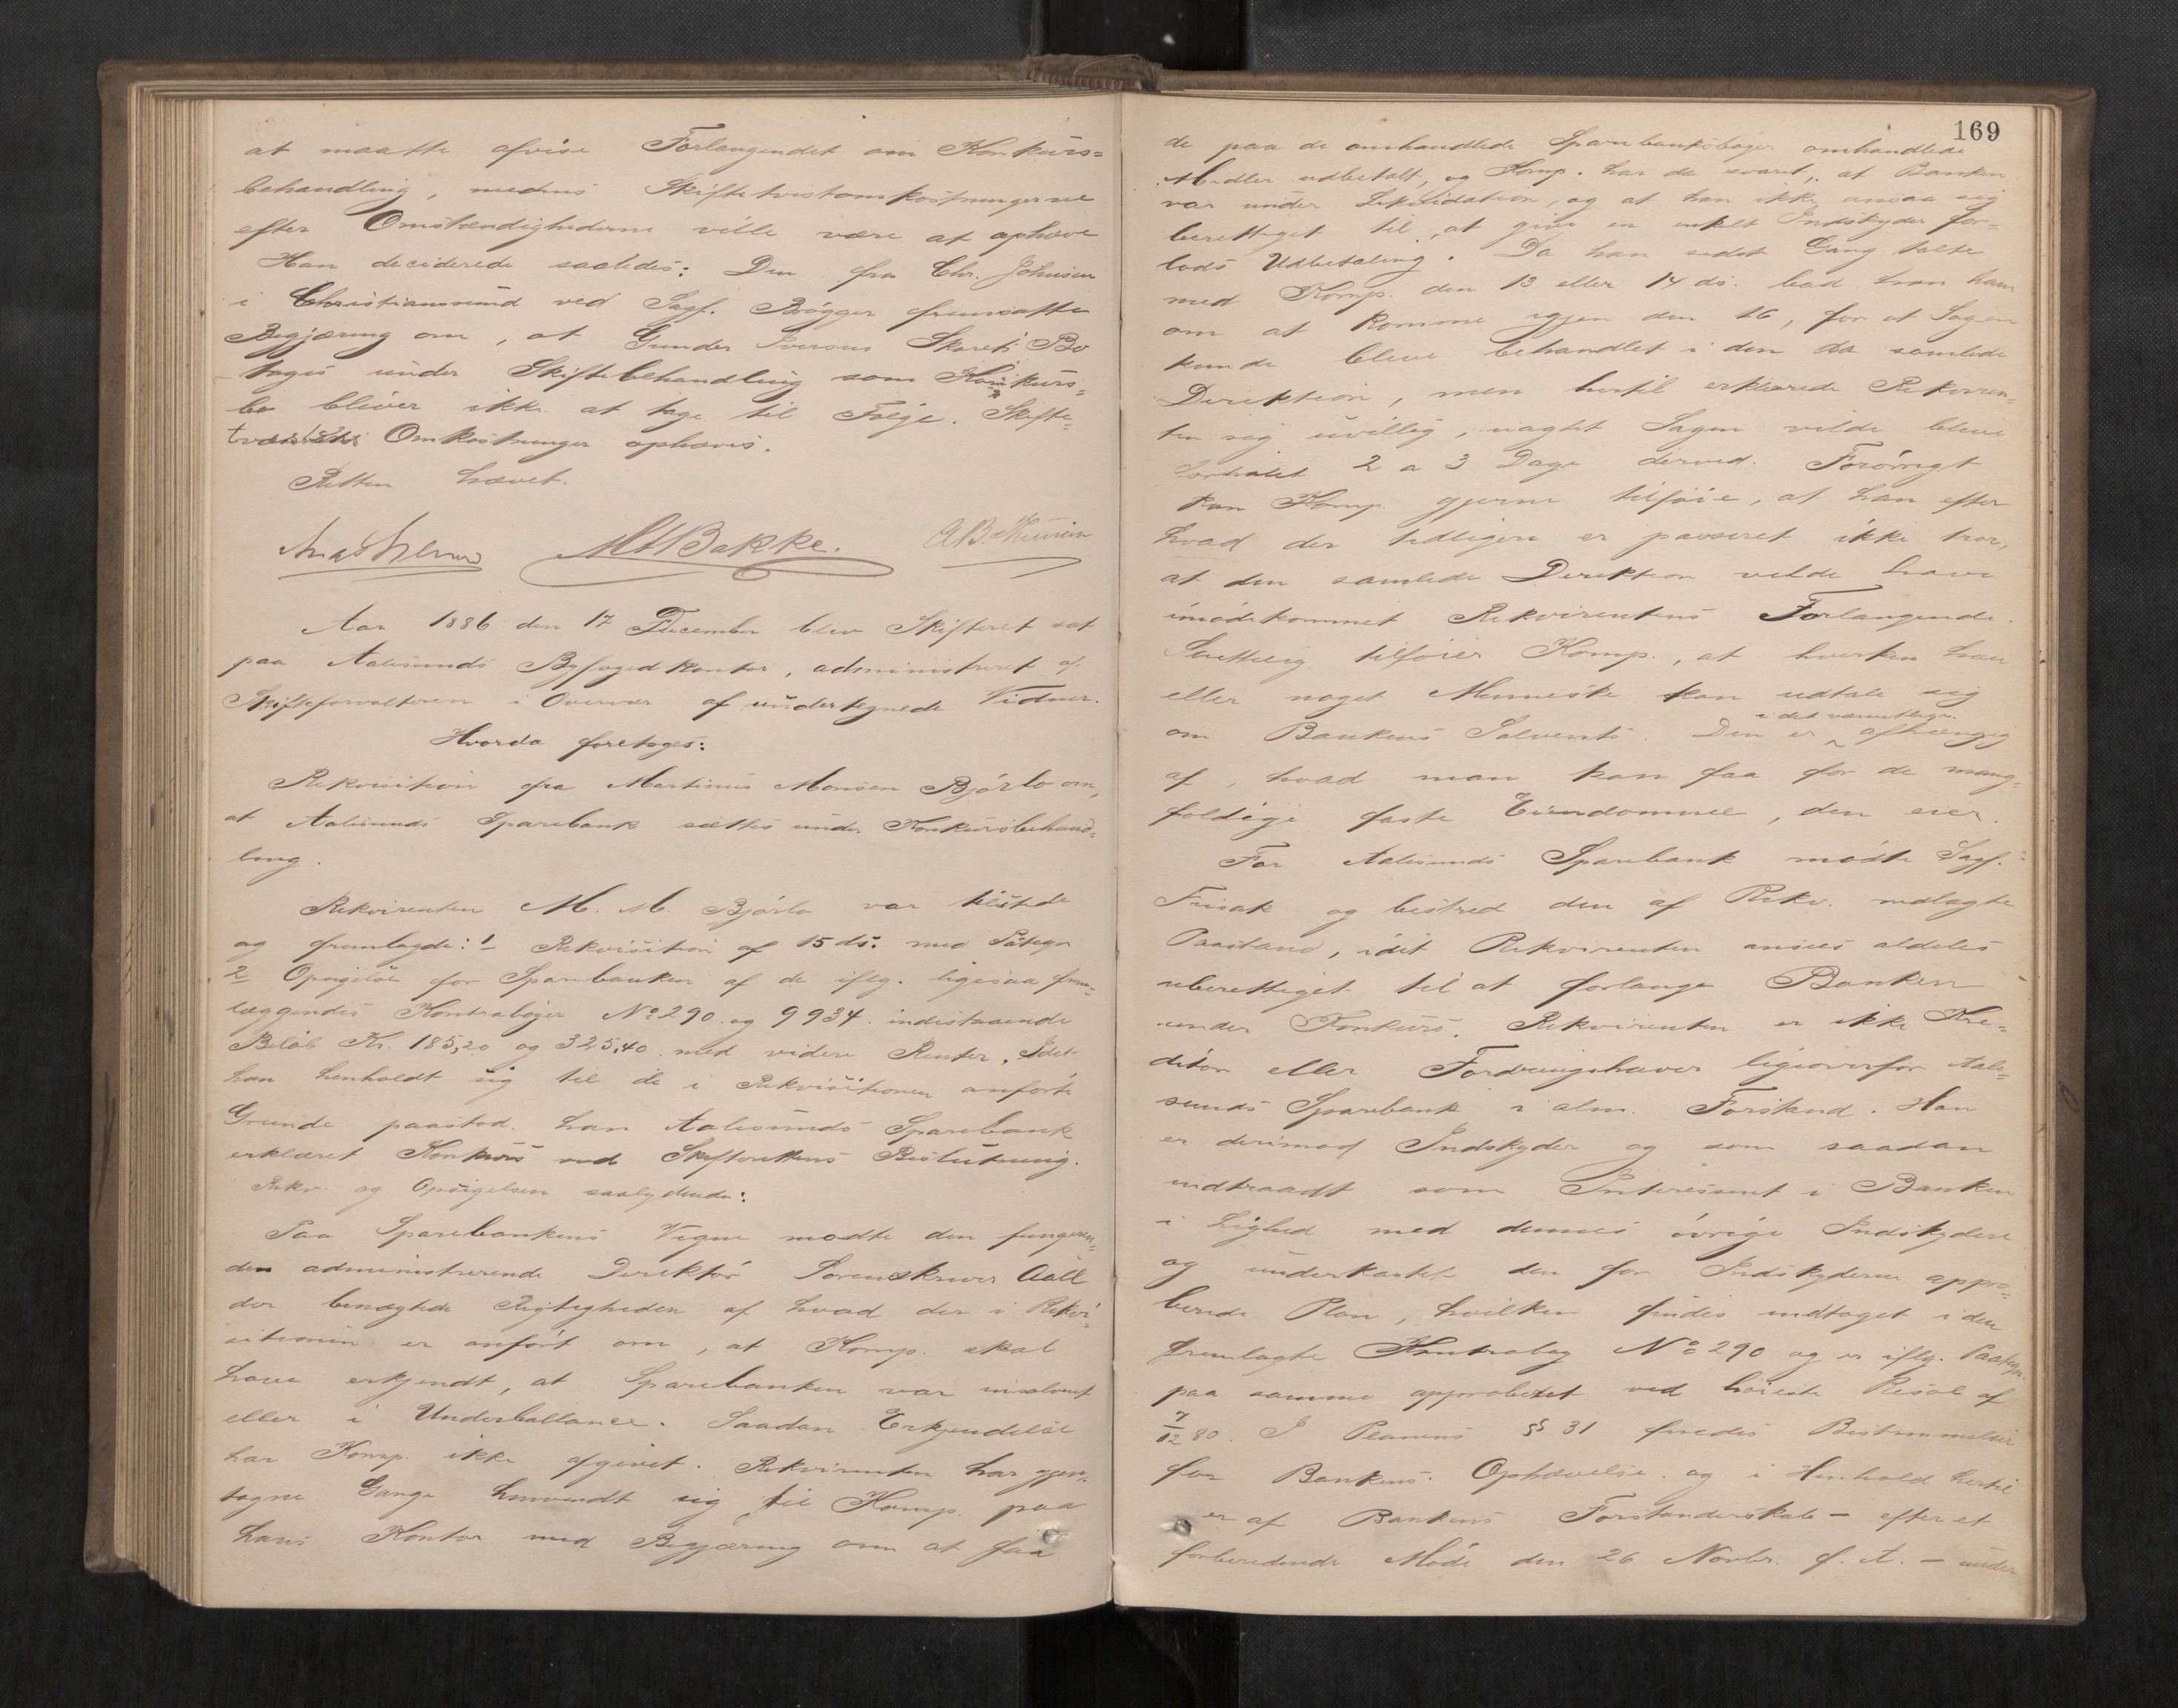 at maatte afvise Forlangendet om Konkurs=
behandling, medens Skiftetvistomkostningerne
efter Omstændighederne vilde være at ophæve
Han deciderede saaledes: Den fra Chr. Johnsen
i Christianssund ved Sagf. Brøgger fremsatte
Begjæring om, at Gunder Iversens Skarets Bo
tages under Skiftebehandling som Konkurs=
bo bliver ikke at tage til Følge. Skifte=
tvistens Omkostninger ophæves.
Retten hævet.
M A Bakke.
Aar 1886 den 17 December blev Skifteret sat
paa Aalesunds Byfogedkontor, administreret af
Skifteforvalteren i Overvær af undertegnede Vidner.
Hvorda foretoges:
Rekvisition fra Martinus Monsen Bjørlo om,
at Aalesunds Sparebank sættes under Konkursbehand=
ling.
Rekvirenten M. M. Bjørlo var tilstede
og fremlagde: 1 Rekvisition af 15 ds. med Pategn
2 Opsigelse for Sparebanken af de iflg. ligesaa frem=
læggendes Kontrabøger No 290 og 9934 indestaaende
Beløb Kr. 185,20 og 325,40 med videre Renter. Idet
han henholdt sig til de i Rekvisitionen anførte
Grunde paastod han Aalesunds Sparebank
erklæret Konkurs ved Skifterettens Beslutning.
Rekv. og Opsigelsen saalydende:
Paa Sparebankens Vegne mødte den fungeren=
den administrerende Direktør Sorenskriver Aall
der benægtede Rigtigheden af hvad der i Rekvi=
sitionen er anført om, at Komp. skal
have erkjendt, at Sparebanken var insolvent
eller i Underballance. Saadan Erkjendelse
har Komp. ikke afgivet. Rekvirenten har gjen=
tagne Gange henvendt sig til Komp. paa
hans Kontor med Begjæring om at faa
169
de paa de omhandlede Sparebanksbøger omhandlede
Midler udbetalt, og Komp. har da svaret, at Banken
var under Likvidation, og at han ikke ansaa sig
berettiget til at give en enkelt Indskyder for=
lods Udbetaling. Da han sidst Gang talte
med Komp. den 13 eller 14 ds. bad han ham
om at komme igjen den 16, for at Sagen
kunde bleve behandlet i den da samlede
Direktion, men hertil erklærede Rekviren=
ten sig uvillig, uagtet Sagen vilde bleve
forhalet 2 a 3 Dage derved. Forøvrigt
kan Komp. gjerne tilføie, at han efter
hvad der tidligere er passeret ikke tror,
at den samlede Direktion vilde have
imødekommet Rekvirentens Forlangende.
Sluttelig tilføier Komp., at hverken han
eller noget Menneske kan udtale sig
om Bankens Solvents. Den er i det væsentlige afhængig
af, hvad man kan faa for de mang=
foldige faste Eiendomme, den eier.
For Aalesunds Sparebank mødte Sagf.
Frisak og bestred den af Rekv. nedlagte
Paastand, idet Rekvirenten ansees aldeles
uberettiget til at forlange Banken
under Konkurs. Rekvirenten er ikke Kre=
ditor eller Fordringshaver ligeoverfor Aale=
sunds Sparebank i alm. Forstand. Han
er derimod Indskyder og som saadan
indtraadt som Interessent i Banken
i Lighed med dennes øvrige Indskydere
og underkastet den for Indskyderne appro=
berede Plan, hvilken findes indtaget i den
fremlagte Kontrabog No 290 og er iflg. Paategn.
paa samme approberet ved høieste Resol af
7/12 80. I Planens § 31 findes Bestemmelser
for Bankens Ophævelse og i Henhold hertil
er af Bankens Forstanderskab – efter et
forberedende Møde den 26 Novbr. f. A. – under